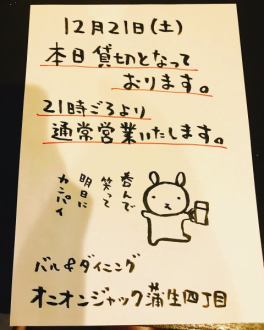 12月21日(土)
本日貸切となって
おります。
21時ごろより
通常営業いたします。
呑んで
笑って
明日に
カンパイ
バル&ダイニング
オニオンジャック蒲生四丁目